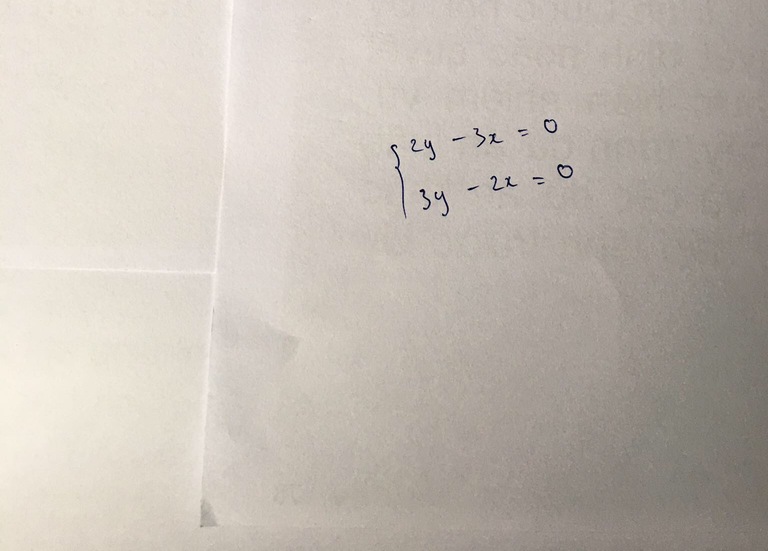 2y - 3x = 0
3y - 2x = 0